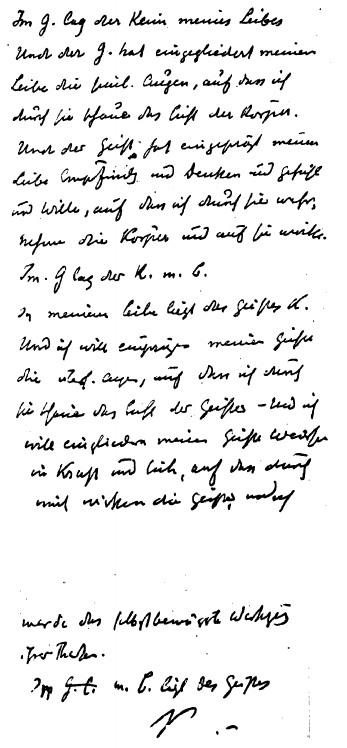 Im G. lag der Keim meines Leibes
Und der G. hat eingegliedert meinem
Leibe die sinl. Augen, auf dass ich
durch sie schaue das Licht der Körper.
Und der Geist hat eingeprägt meinem
Leibe Empfindg und Denken und Gefühl
und Wille, auf dass ich durch sie wahr,
nehme die Körper und auf sie wirke.
Im. G lag der K. m. L.
In meinem Leibe liegt des Geistes K.
Und ich will einprägen meinem Geiste
die übers. Augen, auf dass ich durch
sie schaue das Licht der Geister – Und ich
will eingliedern meinem Geiste Weisheit
u Kraft und Liebe, auf dass durch
mich wirken die Geister, und ich
werde das selbstbewusste Werkzeug
ihrer Thaten.
m. L. liegt des Geistes
K.